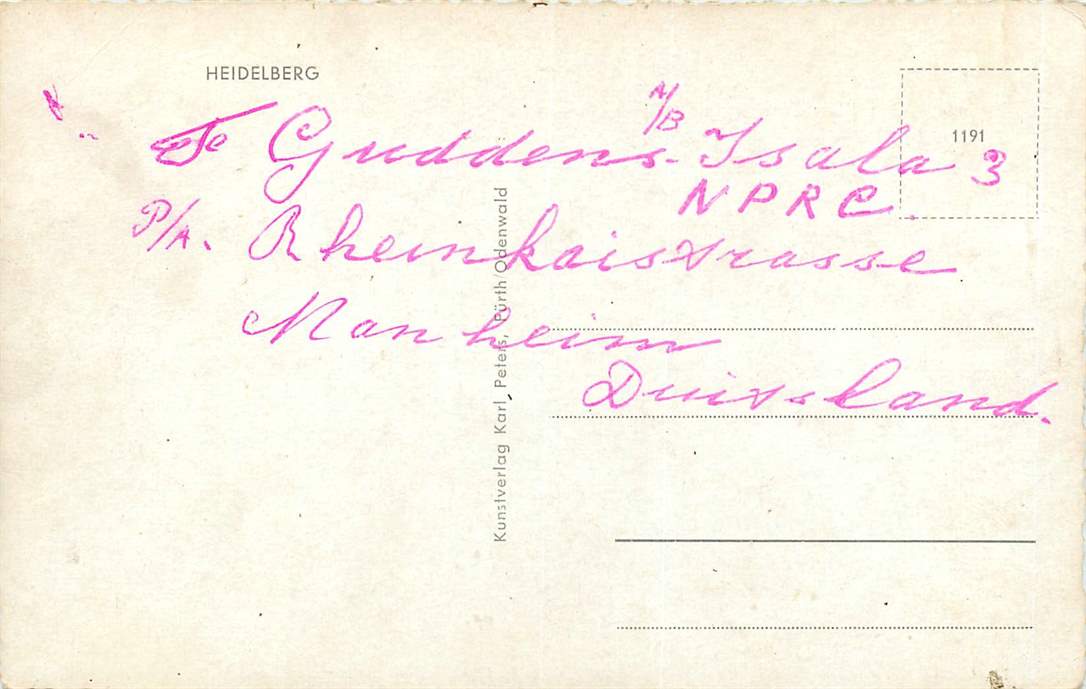 HEIDELBERG
1191
A/B
Guddens. Isala 3
NPRC.
P/A. Rheinkaistrasse
Manheim
Duitsland.
Kunstverlag Karl Peters, Fürth/Odenwald